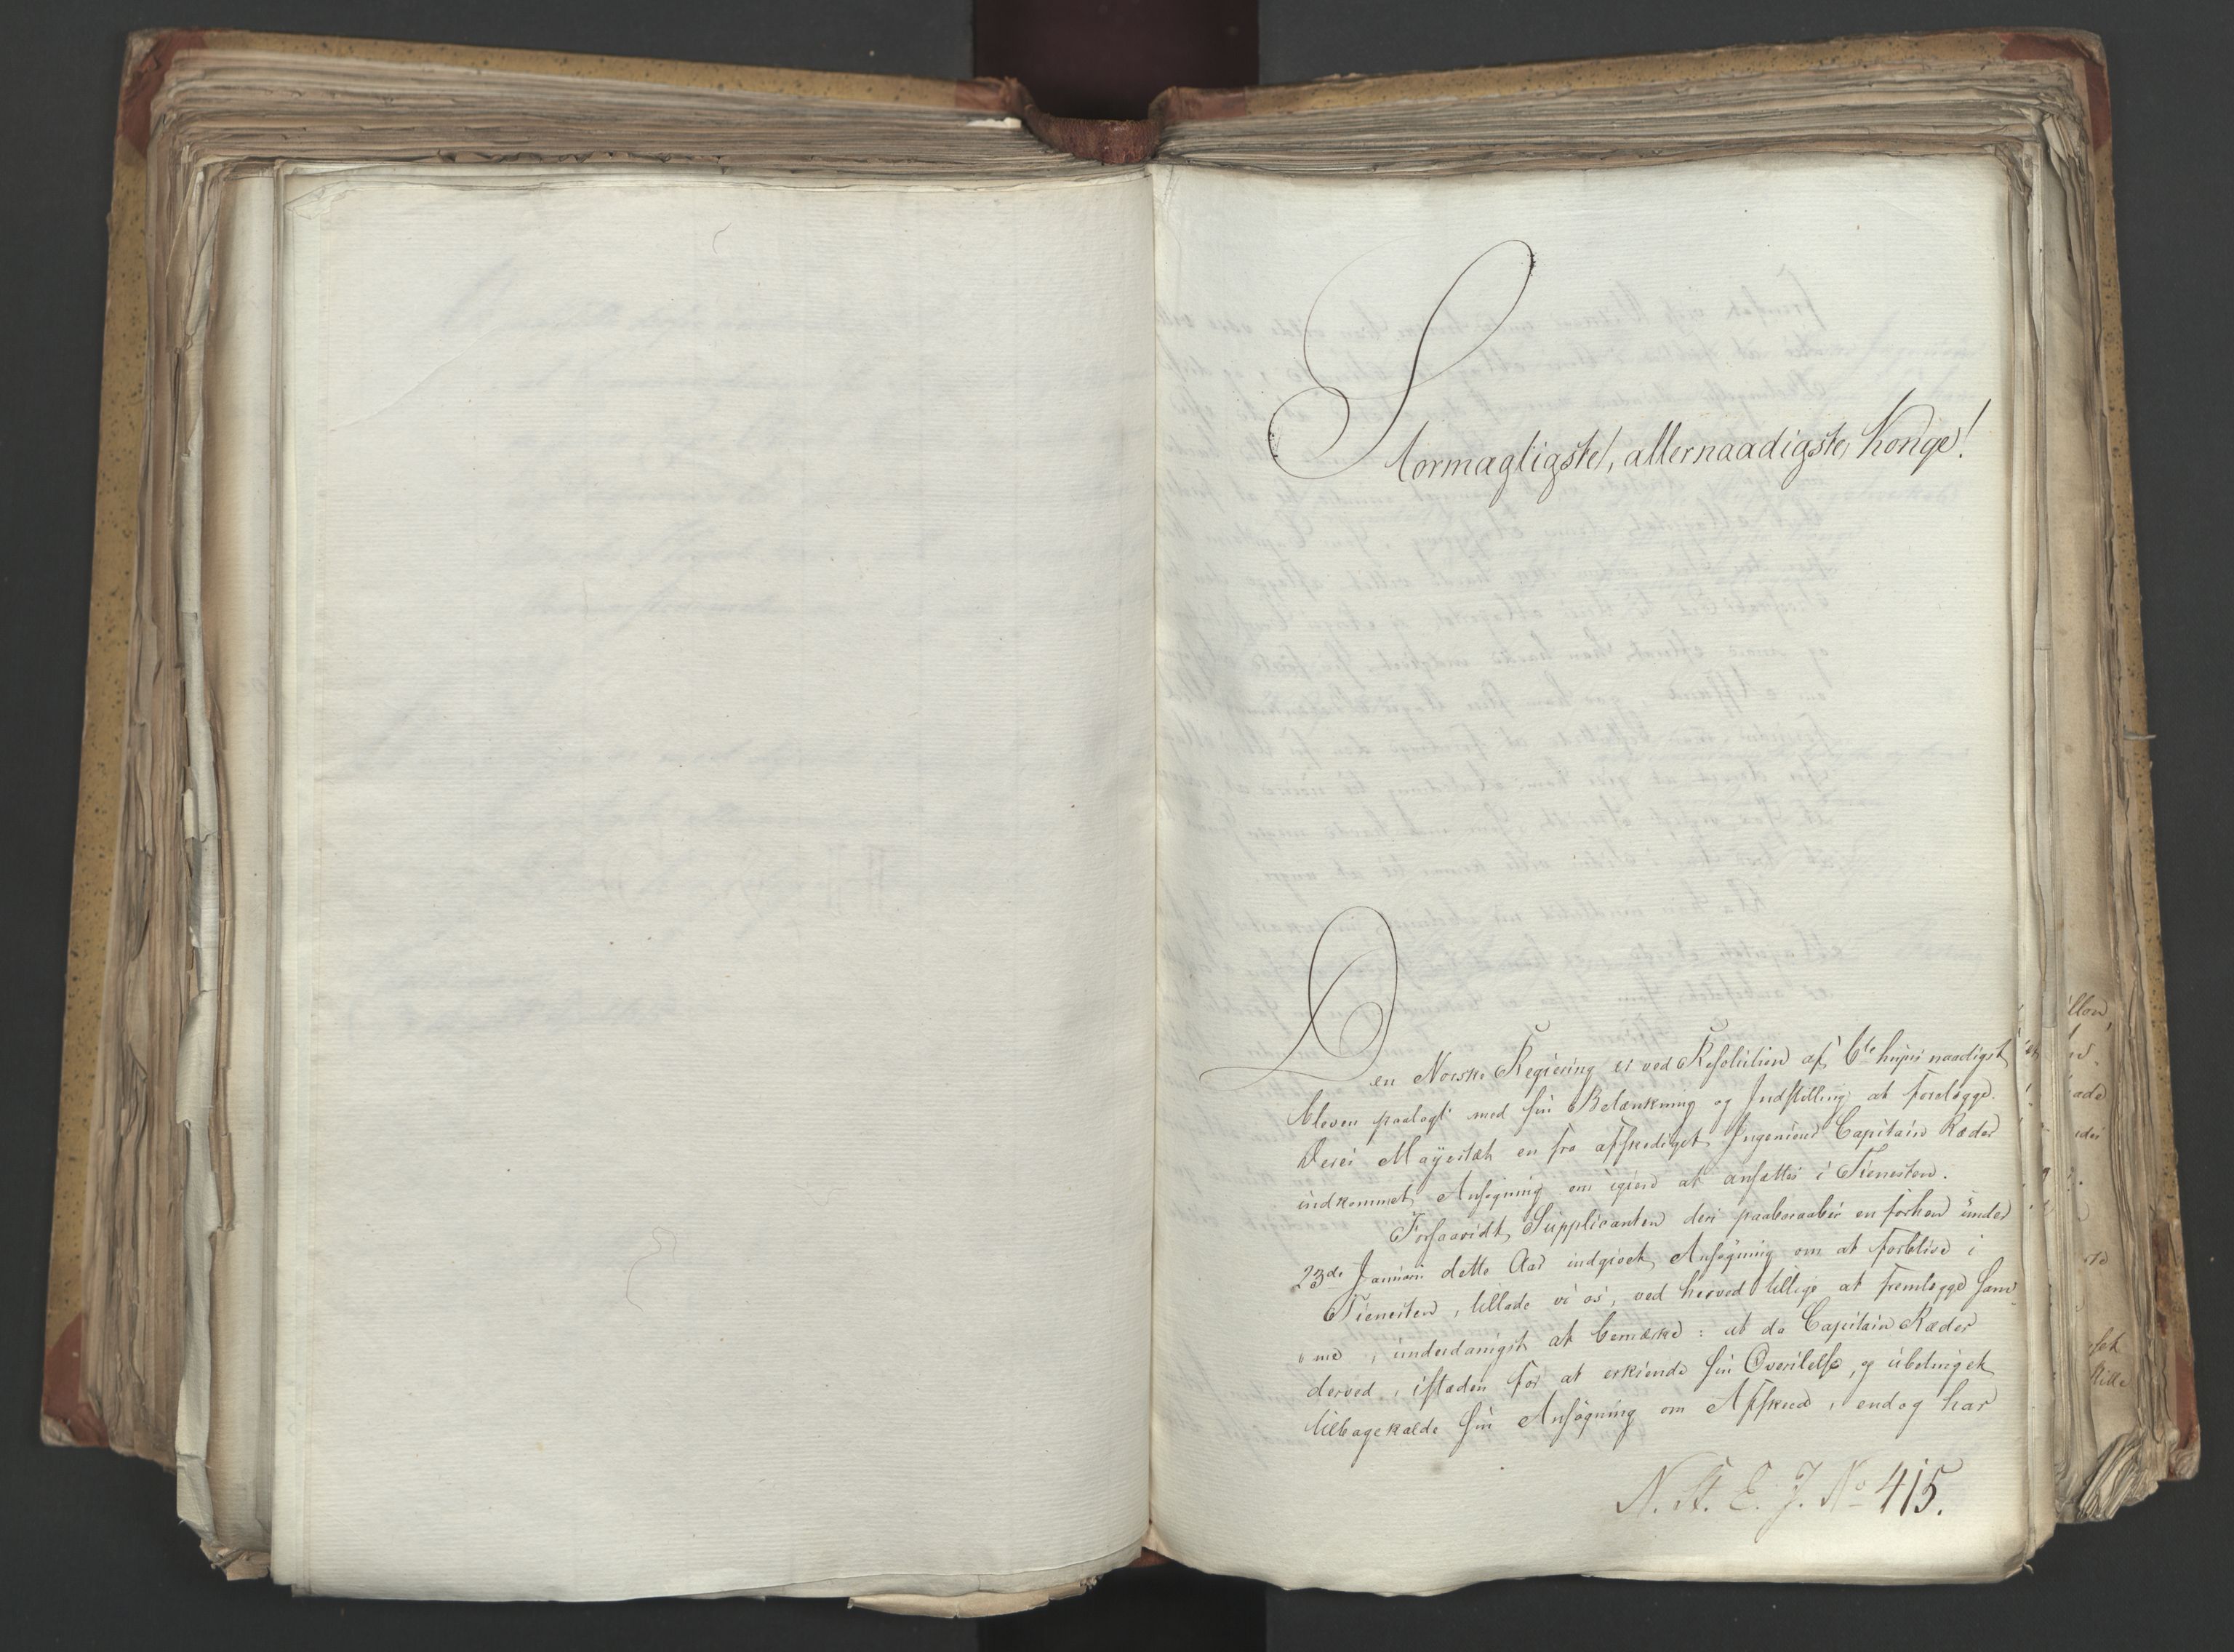 Stormægtigste, allernaadigste Konge!
Den Norske Regiering er ved Resolution af 6te hujus naadigst
bleven paalagt med sin Betænkning og Indstilling at forelægge
Deres Mayestæt en fra afskediget Ingenieur Capitain Ræder
indkommet Ansøgning om igien at ansættes i Tienesten.
Forsaavidt Supplicanten deri paaberaaber en forhen under
23de Januari dette Aar indgivet Ansøgning om at forblive i
Tienesten, tillade vi os, ved herved tillige at fremlægge sam-
me, underdanigst at bemærke: at da Capitain Ræder
derved, istæden for at erkiende sin Overilelse, og ubetinget
tilbagekalde sin Ansøgning om Afskeed, endog har
N. St. E. J. No 415.